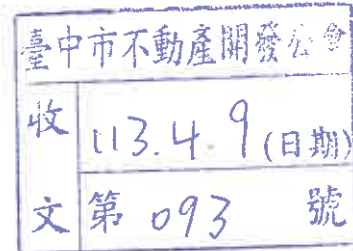 臺中市不動產開發公會
收 113.4.9(日期)
文 第 093 號